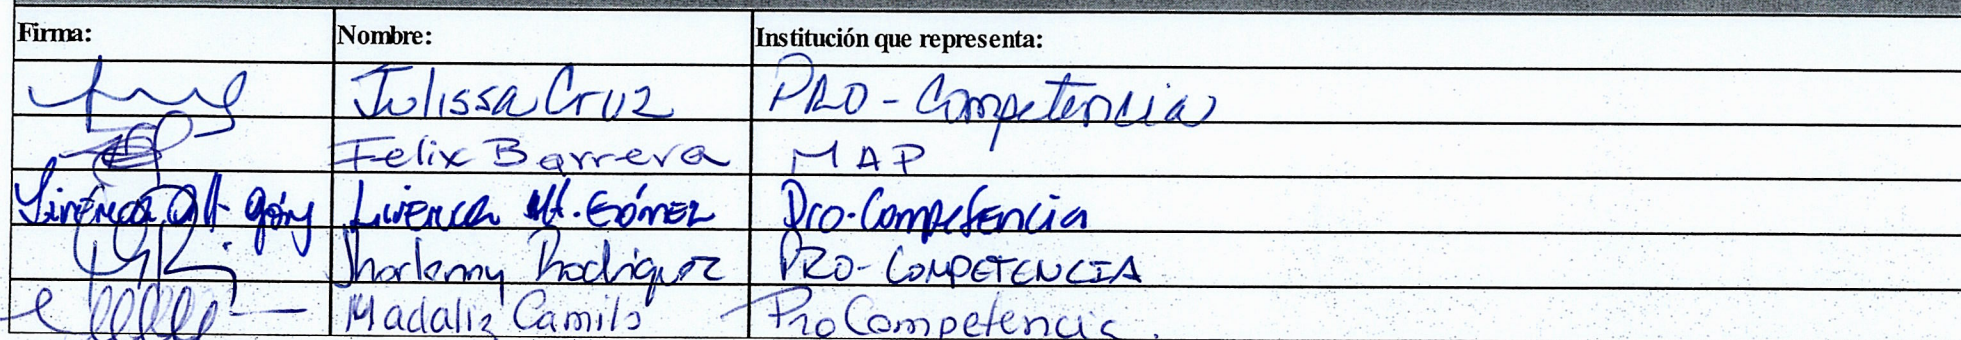 Firma: Nombre: Institución que representa:
Julissa Cruz PRO-Competencia
Felix Barrera MAP
Gómez Pro-Competencia
Rodriguez PRO-COMPETENCIA
Madaliz Camilo ProCompetencia.